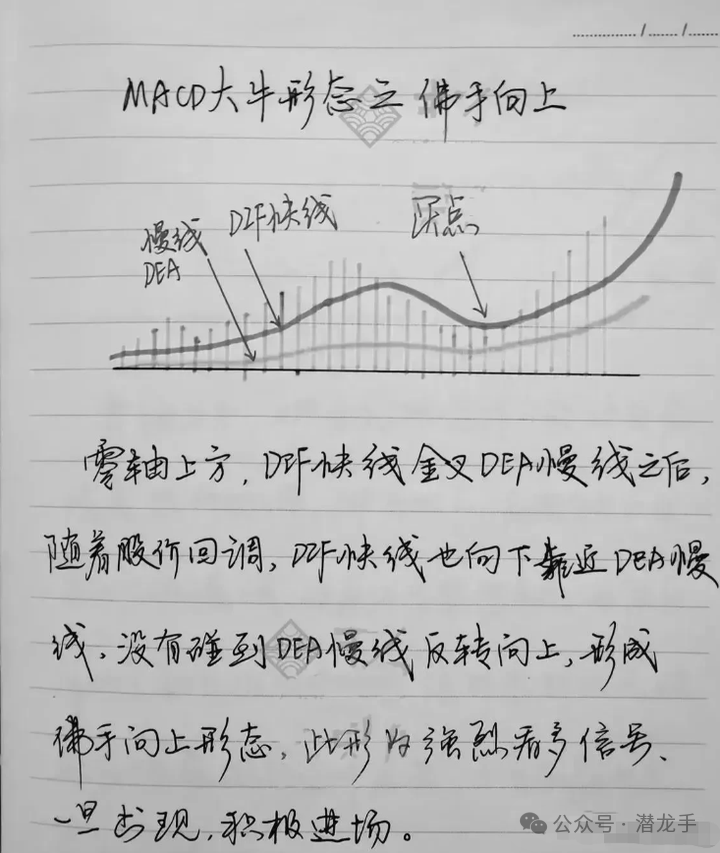 MACD大牛形态之佛手向上
慢线
DEA
DIF快线
买点
零轴上方,DIF快线金叉DEA慢线之后,
随着股价回调,DIF快线也向下靠近DEA慢
线,没有碰到DEA慢线反转向上,形成
佛手向上形态,此形为强烈看多信号、
一旦出现,积极进场。
公众号·潜龙手